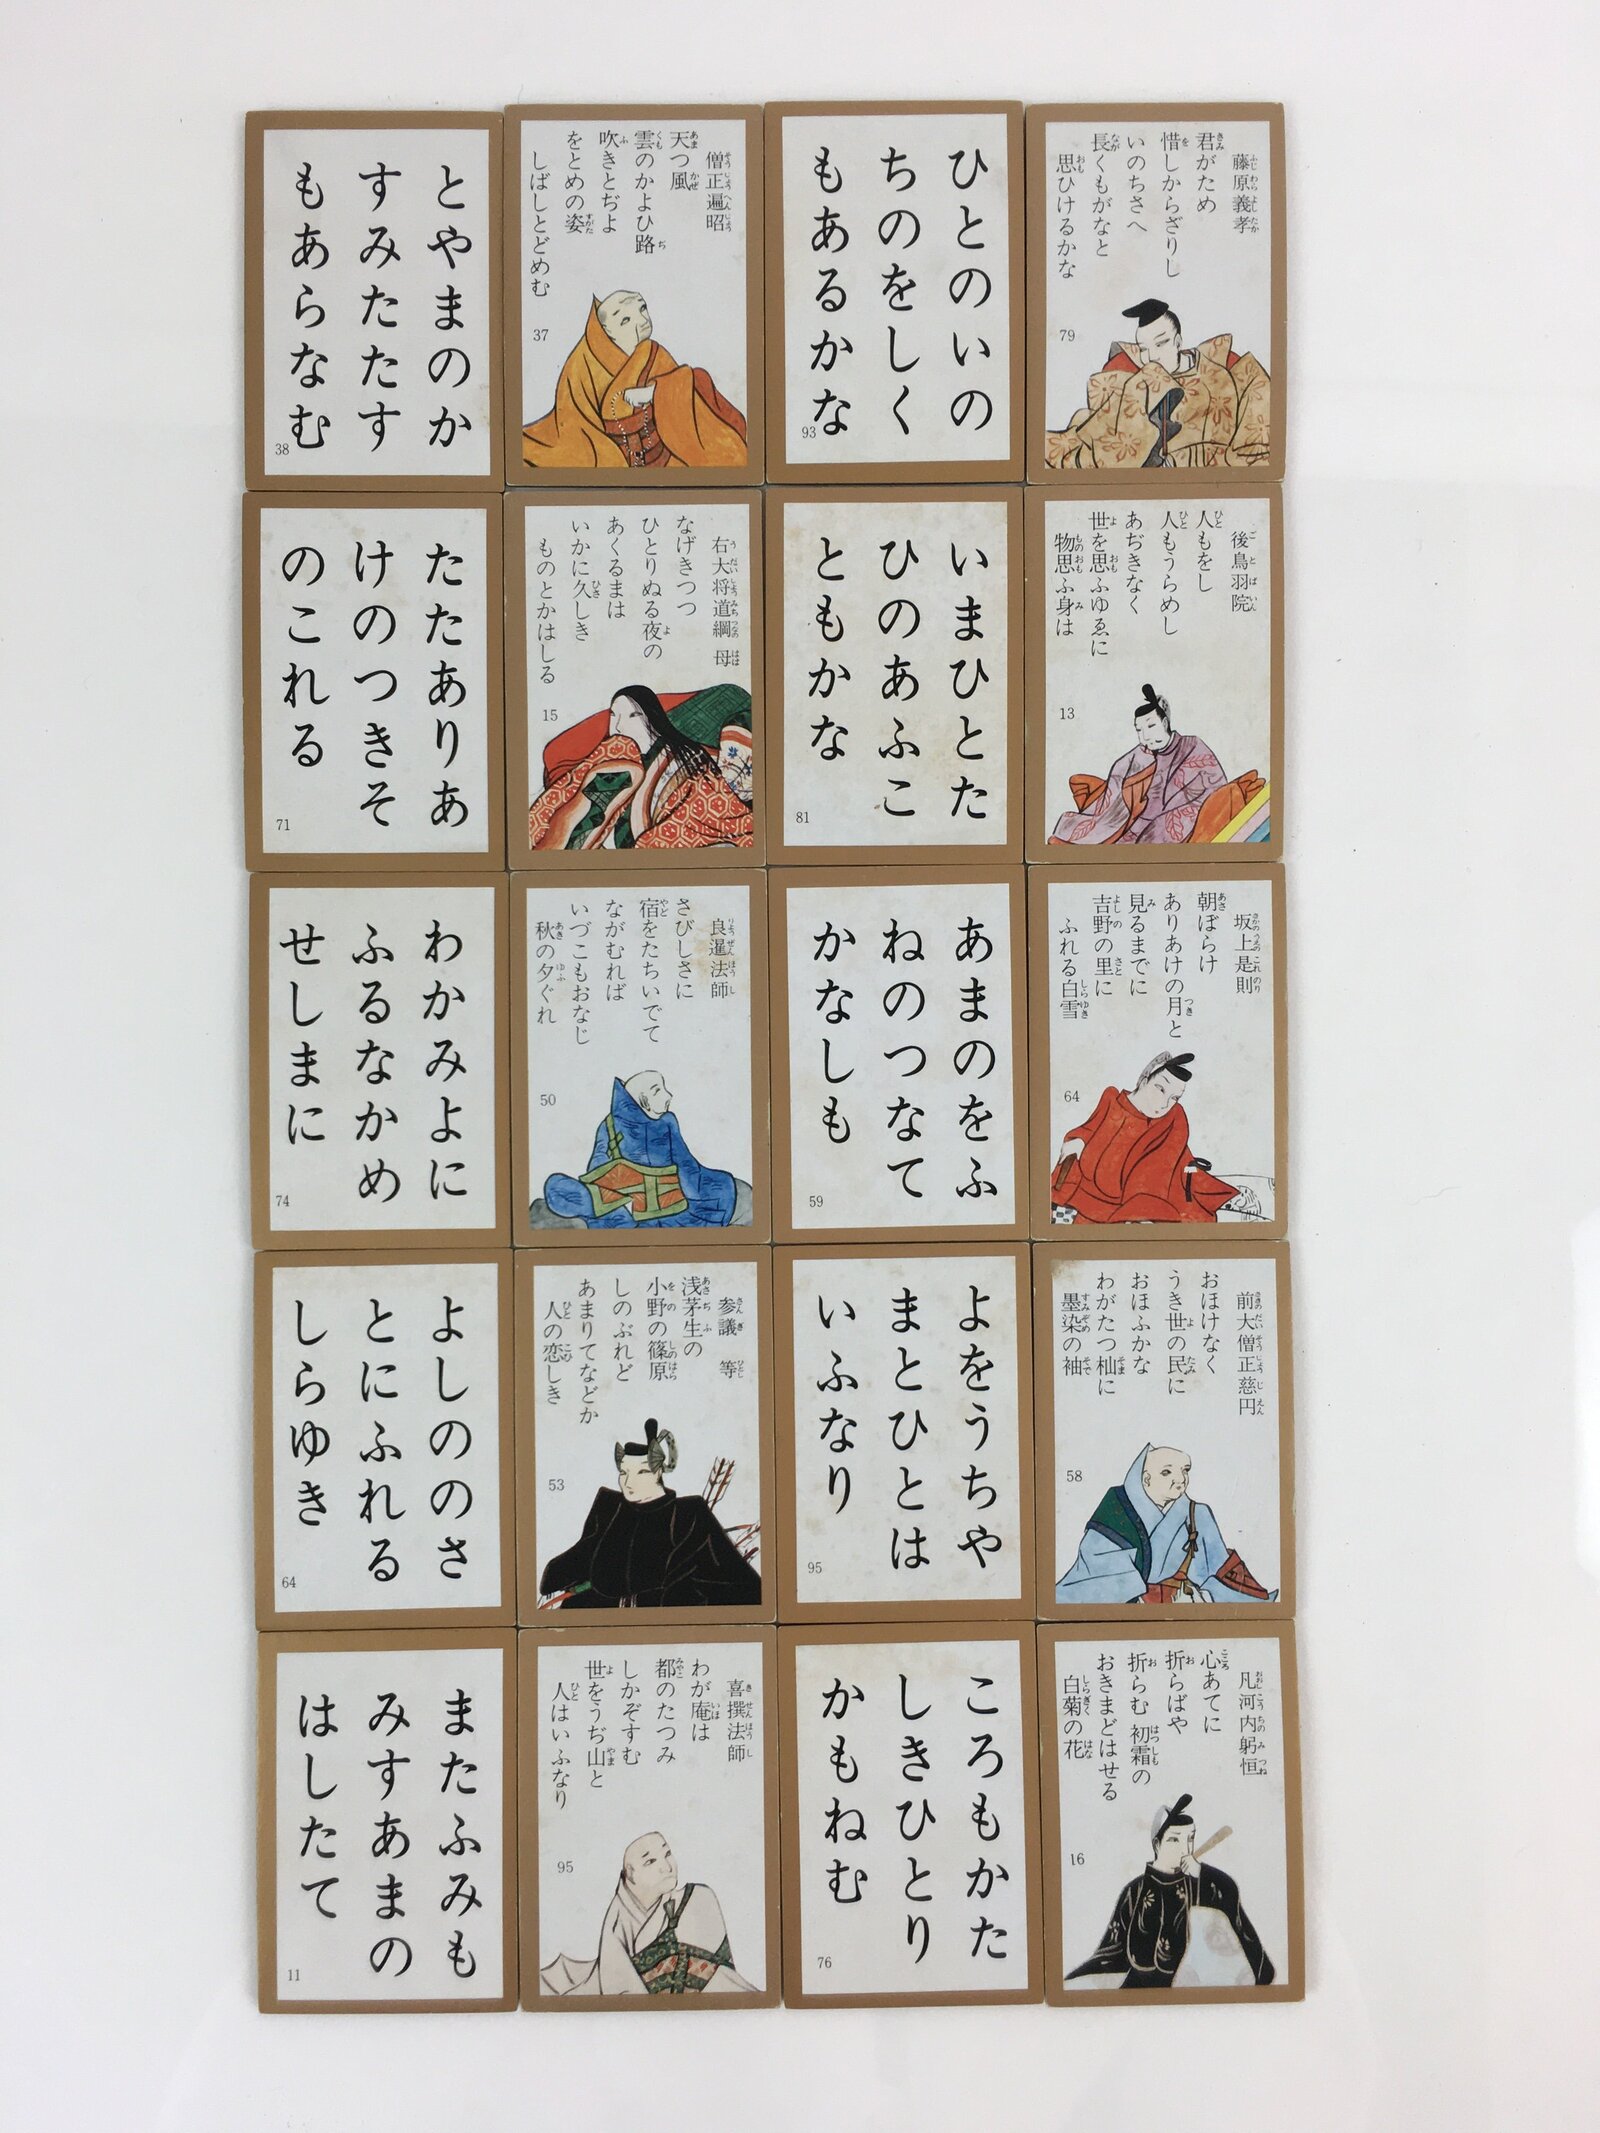 とやまのか
すみたたす
もあらなむ
38
僧正遍昭
天つ風
雲のかよひ路
吹きとぢよ
をとめの姿
しばしとどめむ
37
ひとのいの
ちのをしく
もあるかな
93
藤原義孝
君がため
惜しからざりし
いのちさへ
長くもがなと
思ひけるかな
79
たたありあ
けのつきそ
のこれる
71
右大将道綱母
なげきつつ
ひとりぬる夜の
あくるまは
いかに久しき
ものとかはしる
15
いまひとた
ひのあふこ
ともかな
81
後鳥羽院
人もをし
人もうらめし
あぢきなく
世を思ふゆゑに
物思ふ身は
13
わかみよに
ふるなかめ
せしまに
74
良暹法師
さびしさに
宿をたちいでて
ながむれば
いづこもおなじ
秋の夕ぐれ
50
あまのをふ
ねのつなて
かなしも
59
坂上是則
朝ぼらけ
ありあけの月と
見るまでに
吉野の里に
ふれる白雪
64
よしののさ
とにふれる
しらゆき
64
参議 等
浅茅生の
小野の篠原
しのぶれど
あまりてなどか
人の恋しき
53
よをうちや
まとひとは
いふなり
95
前大僧正慈円
おほけなく
うき世の民に
おほふかな
わがたつ杣に
墨染の袖
58
またふみも
みすあまの
はしたて
11
喜撰法師
わが庵は
都のたつみ
しかぞすむ
世をうぢ山と
人はいふなり
95
ころもかた
しきひとり
かもねむ
76
凡河内躬恒
心あてに
折らばや
折らむ 初霜の
おきまどはせる
白菊の花
16